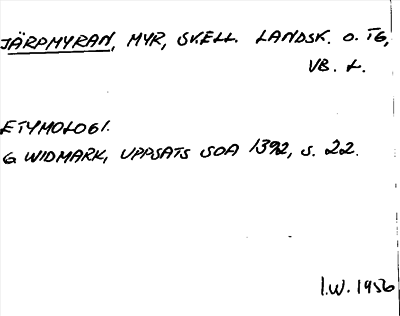 JÄRPMYRAN, MYR, SKELL. LANDSK. O. TG,
VB. L.
ETYMOLOGI.
G WIDMARK, UPPSATS SOA 1392, S. 22.
I.W. 1956